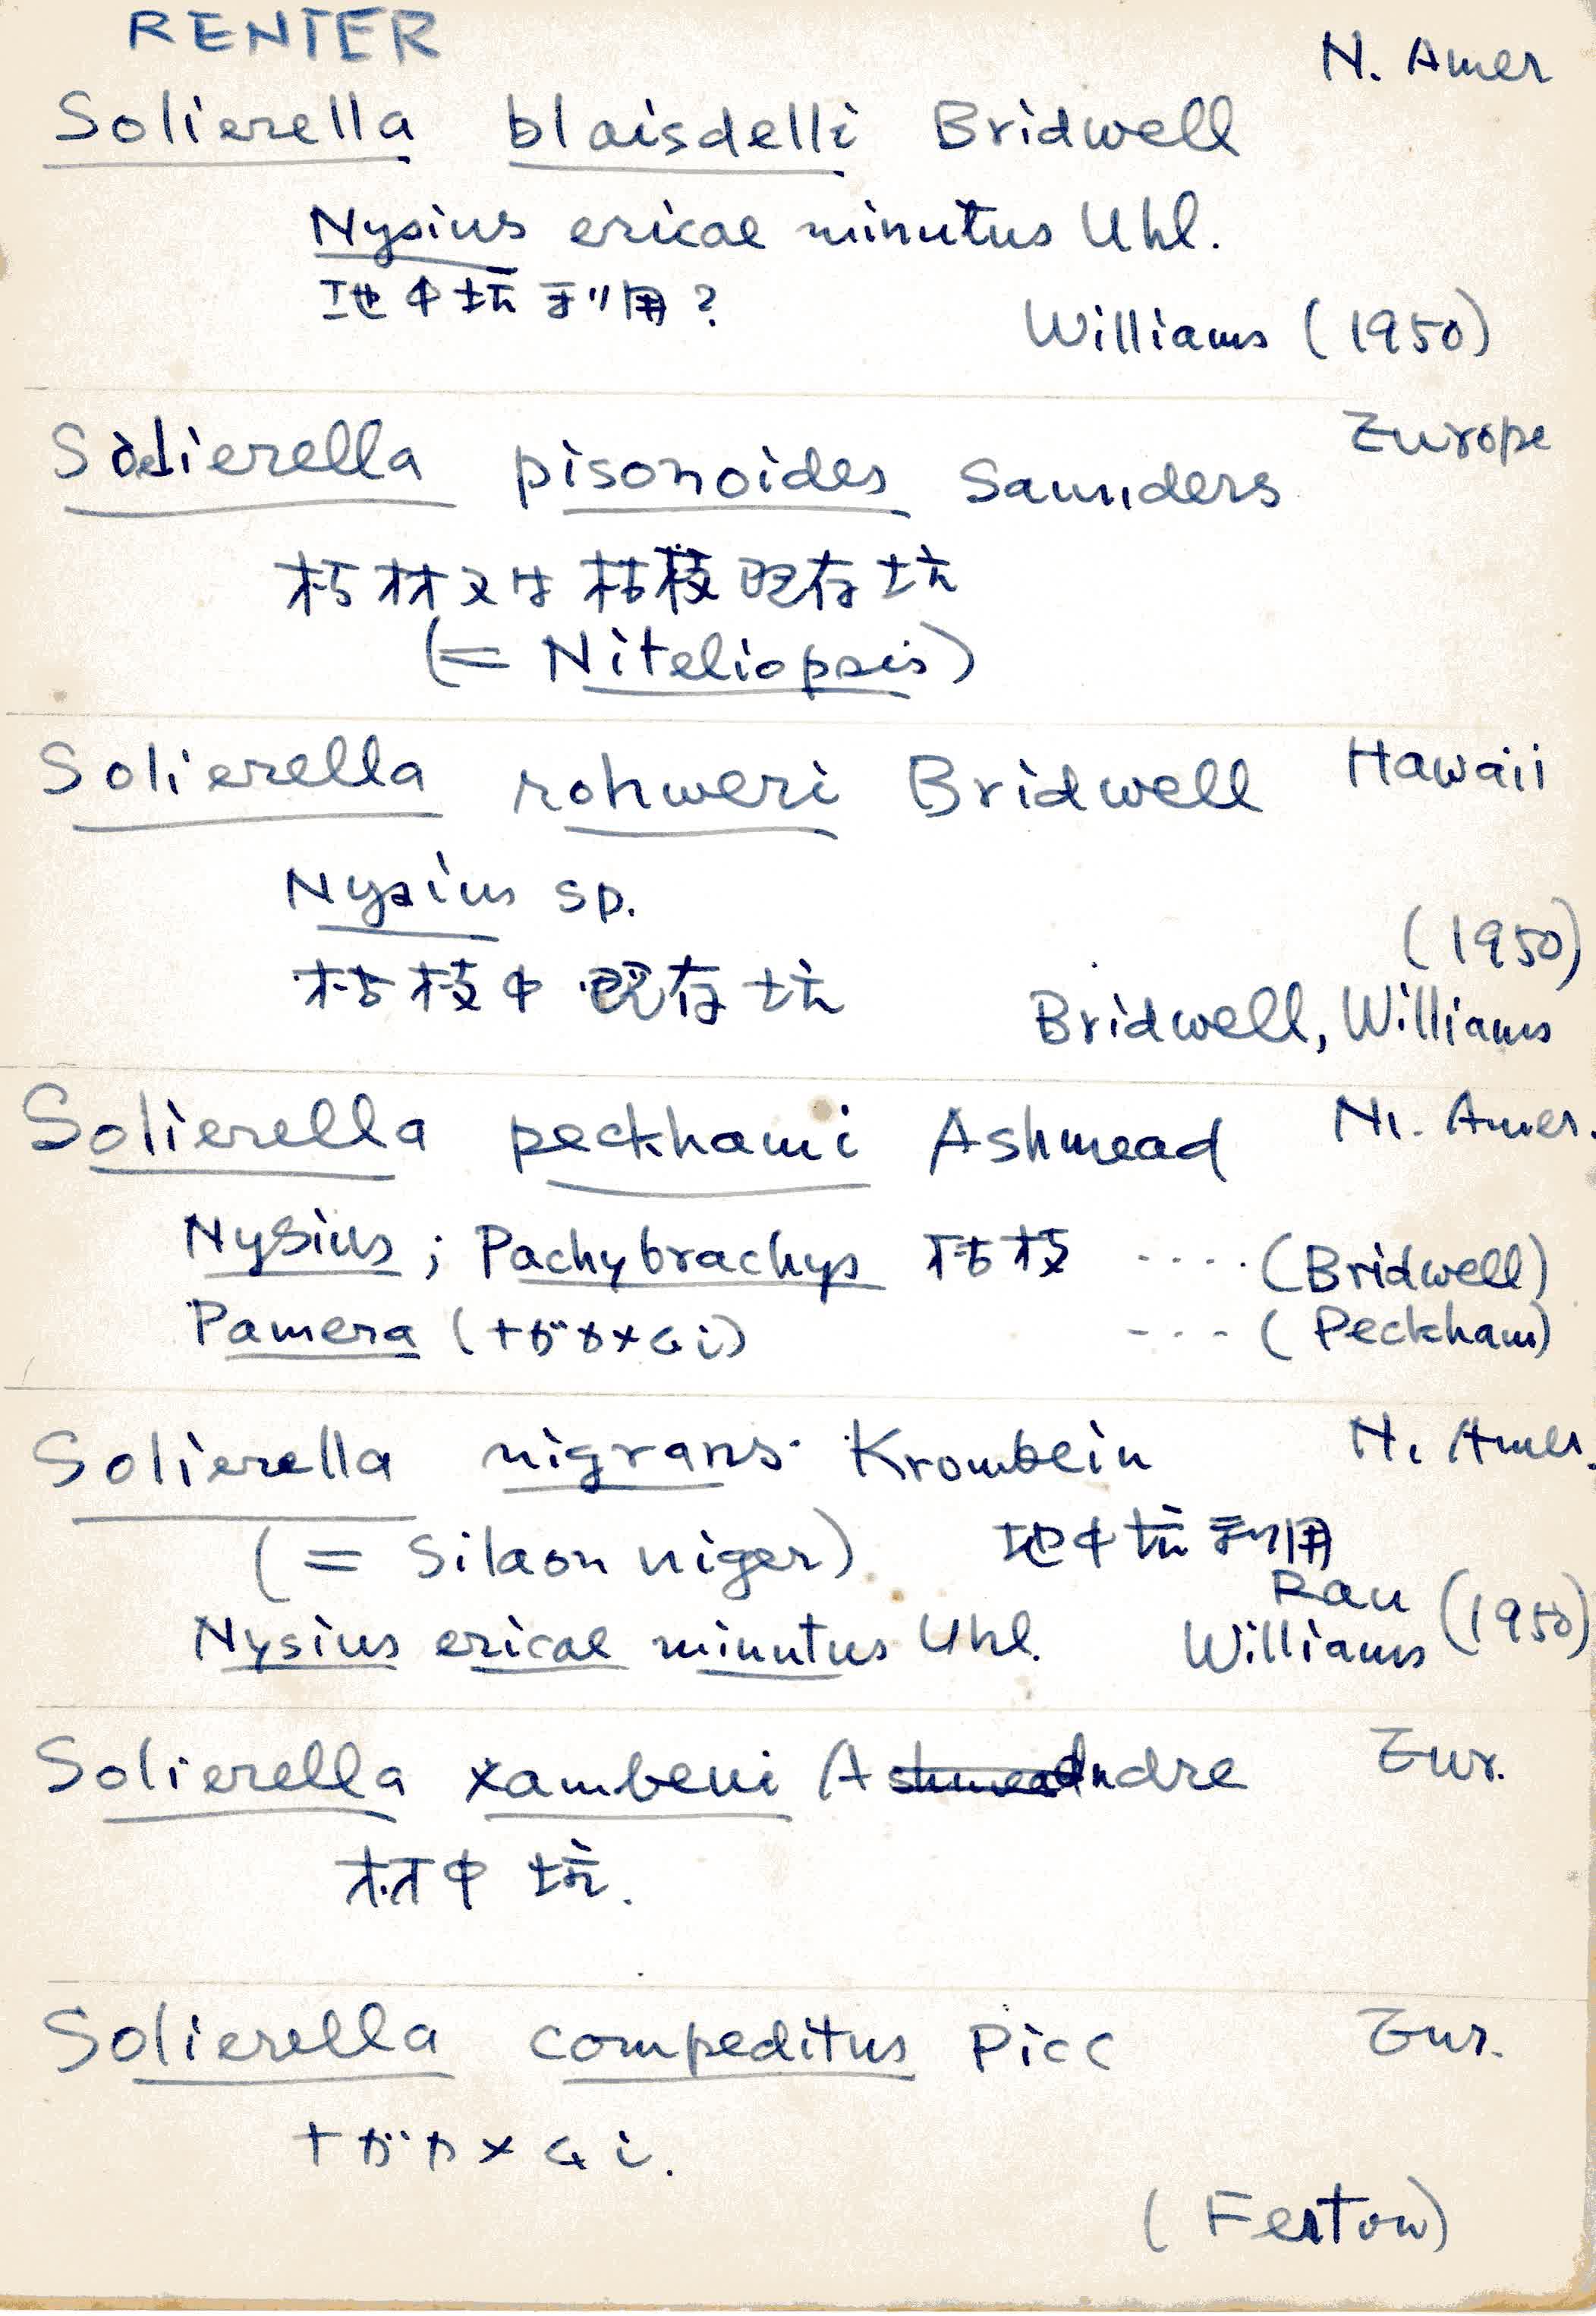 RENTER
N. Amer
Solierella blaisdelli Bridwell
Nysius ericae minutus Uhl.
地中坑利用?
Williams (1950)
Europe
Solierella pisonoides Saunders
朽材又は枯枝既存坑
(= Niteliopsis)
Solierella rohweri Bridwell Hawaii
Nysius sp.
(1950)
枯枝中既存坑
Bridwell, Williams
Solierella peckhami Ashmead N. Amer.
Nysius ; Pachybrachys 枯枝 ....(Bridwell)
Pamera (ナガカメムシ) ---(Peckham)
Solierella nigrans Krombein N. Amer.
(= Silaon niger) 地中坑利用
Rau
Nysius ericae minutus Uhl. Williams (1950)
Solierella xambeui Ashmead Andre Eur.
材中坑.
Solierella compeditus Picc Eur.
ナガカメムシ.
(Ferton)